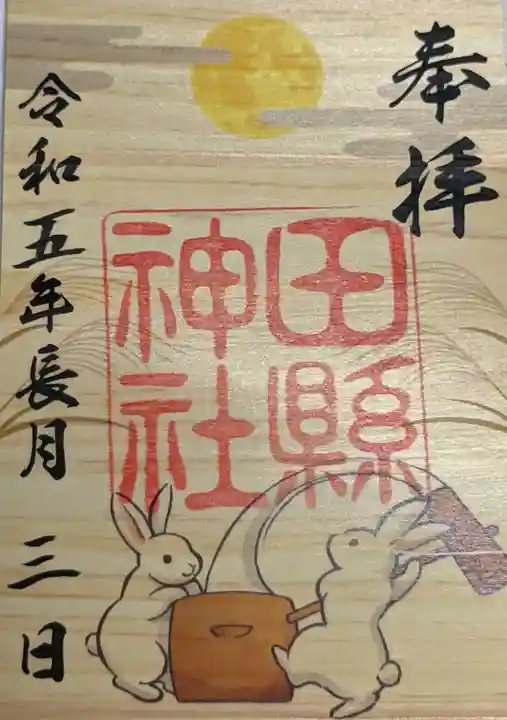 奉拝
田縣
神社
令和五年長月三日